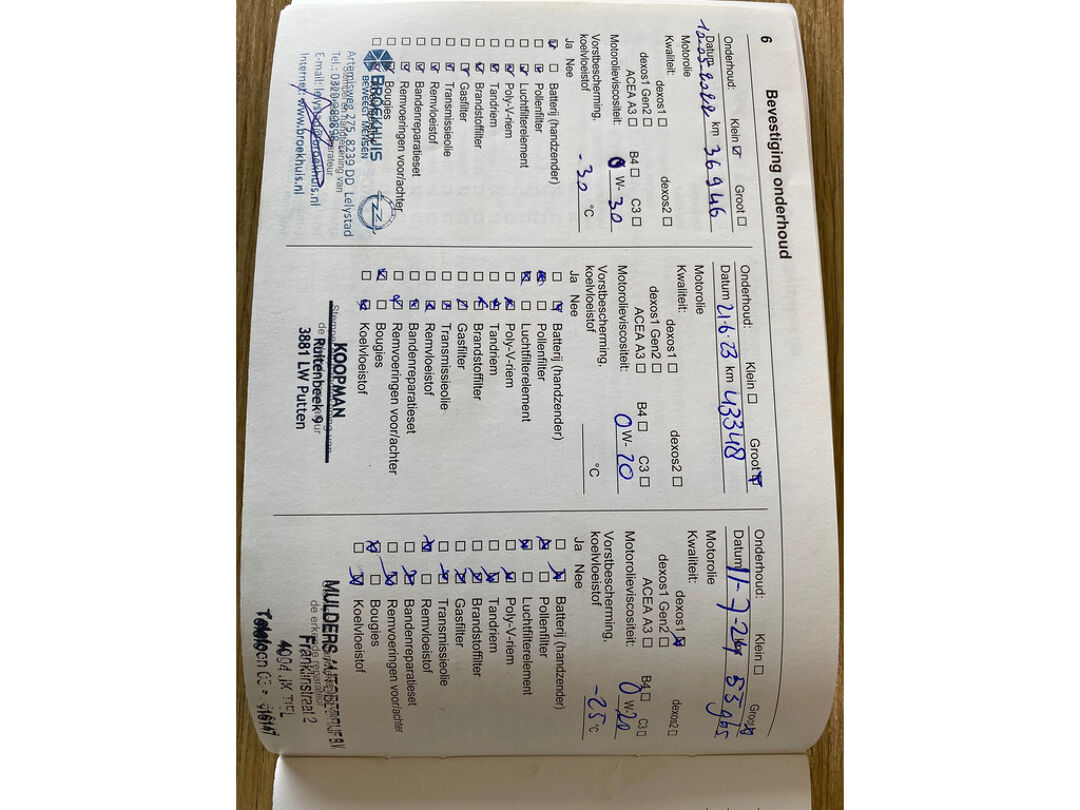 6
Bevestiging onderhoud
Onderhoud: Klein ☑ Groot ☐
Datum 10-05-2022 km 36946
Motorolie
Kwaliteit:
dexos1 ☐ dexos2 ☐
dexos1 Gen2 ☐
ACEA A3 ☐ B4 ☐ C3 ☐
Motorolieviscositeit: 0 W- 30
Vorstbescherming,
koelvloeistof -30 °C
Ja Nee
☑ ☐ Batterij (handzender)
☐ ☑ Pollenfilter
☐ ☑ Luchtfilterelement
☐ ☑ Poly-V-riem
☐ ☑ Tandriem
☐ ☑ Brandstoffilter
☐ ☑ Gasfilter
☐ ☑ Transmissieolie
☐ ☑ Remvloeistof
☐ ☑ Bandenreparatieset
☐ ☑ Remvoeringen voor/achter
Bougies
BROEKHUIS
BEWEEGT MENSEN
Artemisweg 275, 8239 DD Lelystad
Tel.:
E-mail: lelystad@broekhuis.nl
Internet: www.broekhuis.nl
Onderhoud: Klein ☐ Groot ☑
Datum 21-6-23 km 43348
Motorolie
Kwaliteit:
dexos1 ☐ dexos2 ☐
dexos1 Gen2 ☐
ACEA A3 ☐ B4 ☐ C3 ☐
Motorolieviscositeit: 0 W- 20
Vorstbescherming,
koelvloeistof °C
Ja Nee
☐ ☑ Batterij (handzender)
☑ ☐ Pollenfilter
☑ ☐ Luchtfilterelement
☐ ☑ Poly-V-riem
☐ ☑ Tandriem
☐ ☑ Brandstoffilter
☐ ☑ Gasfilter
☐ ☑ Transmissieolie
☐ ☑ Remvloeistof
☐ ☑ Bandenreparatieset
☐ ☑ Remvoeringen voor/achter
☑ ☐ Bougies
☐ ☑ Koelvloeistof
KOOPMAN
Ruitenbeek 9
3881 LW Putten
Onderhoud: Klein ☐ Groot ☑
Datum 11-7-24 55965
Motorolie
Kwaliteit:
dexos1 ☑ dexos2 ☐
dexos1 Gen2 ☐
ACEA A3 ☐ B4 ☐ C3 ☐
Motorolieviscositeit: 0 W- 20
Vorstbescherming,
koelvloeistof -25 °C
Ja Nee
☐ ☑ Batterij (handzender)
☑ ☐ Pollenfilter
☑ ☐ Luchtfilterelement
☐ ☑ Poly-V-riem
☐ ☑ Tandriem
☐ ☑ Brandstoffilter
☐ ☑ Gasfilter
☐ ☑ Transmissieolie
☑ ☐ Remvloeistof
☐ ☑ Bandenreparatieset
☐ ☑ Remvoeringen voor/achter
☑ ☐ Bougies
☐ ☑ Koelvloeistof
MULDERS AUTOBEDRIJF B.V.
de erkende reparateur
Franklinstraat 2
4004 JK TIEL
Telefoon